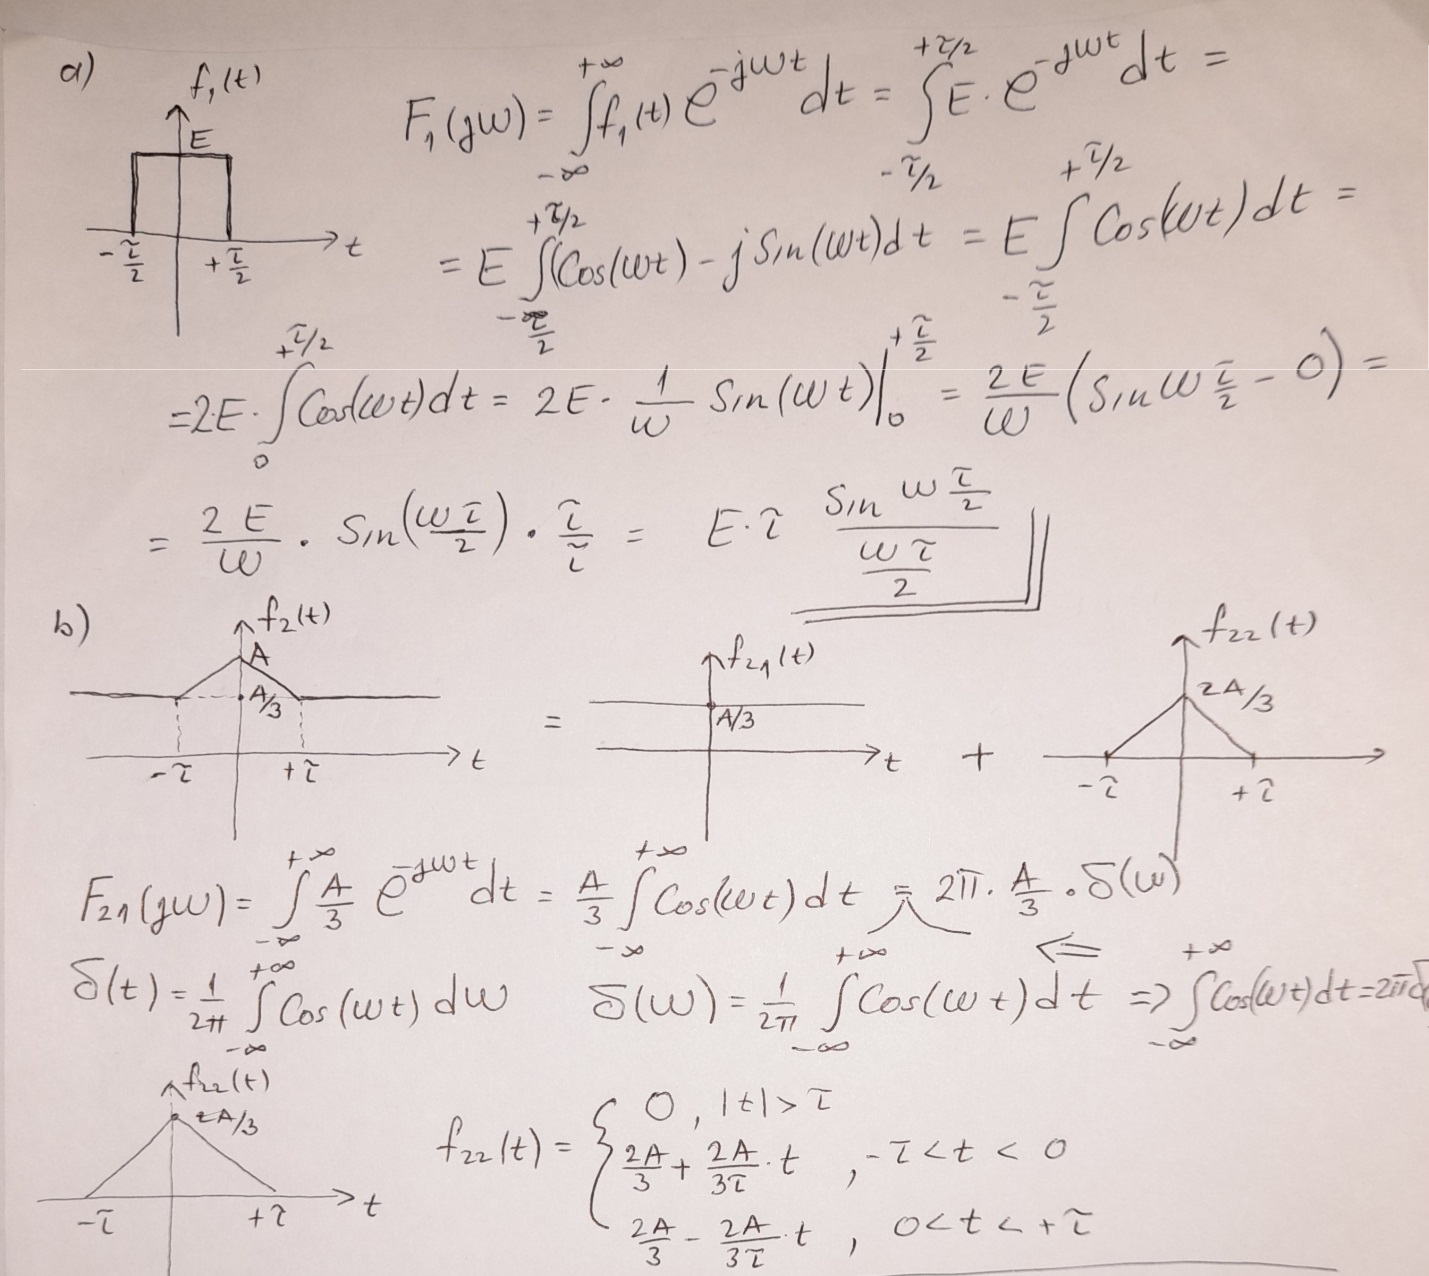 a)
f₁(t)
E
-τ/2 +τ/2 t
F₁(jω) = ∫_{-∞}^{+∞} f₁(t) e^{-jωt} dt = ∫_{-τ/2}^{+τ/2} E · e^{-jωt} dt =
= E ∫_{-τ/2}^{+τ/2} (Cos(ωt) - j Sin(ωt) dt = E ∫_{-τ/2}^{+τ/2} Cos(ωt) dt =
= 2·E · ∫_{0}^{+τ/2} Cos(ωt) dt = 2E · 1/ω Sin(ωt) |_{0}^{+τ/2} = 2E/ω (Sin ω τ/2 - 0) =
= 2E/ω · Sin(ωτ/2) · τ/τ = E·τ (Sin ω τ/2)/(ωτ/2)
b)
f₂(t)
A
A/3
-τ +τ t
=
f₂₁(t)
A/3
t
+
f₂₂(t)
2A/3
-τ +τ
F₂₁(jω) = ∫_{-∞}^{+∞} A/3 e^{-jωt} dt = A/3 ∫_{-∞}^{+∞} Cos(ωt) dt = 2π · A/3 · δ(ω)
⇐
δ(t) = 1/2π ∫_{-∞}^{+∞} Cos(ωt) dω δ(ω) = 1/2π ∫_{-∞}^{+∞} Cos(ωt) dt => ∫_{-∞}^{+∞} Cos(ωt) dt = 2πδ
f₂₂(t)
2A/3
-τ +τ t
f₂₂(t) = { 0, |t| > τ
2A/3 + 2A/3τ · t , -τ < t < 0
2A/3 - 2A/3τ · t , 0 < t < +τ